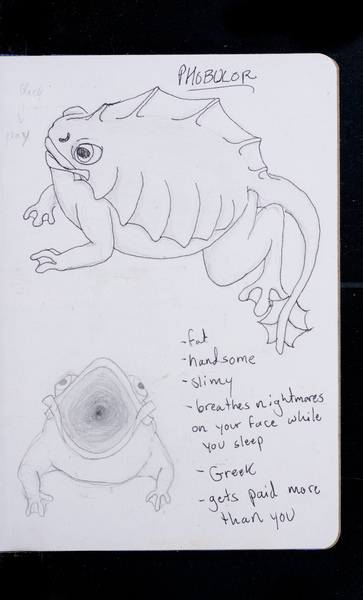 PHOBULOR
- fat
- handsome
- slimy
- breathes nightmares
on your face while
you sleep
- Greek
- gets paid more
than you